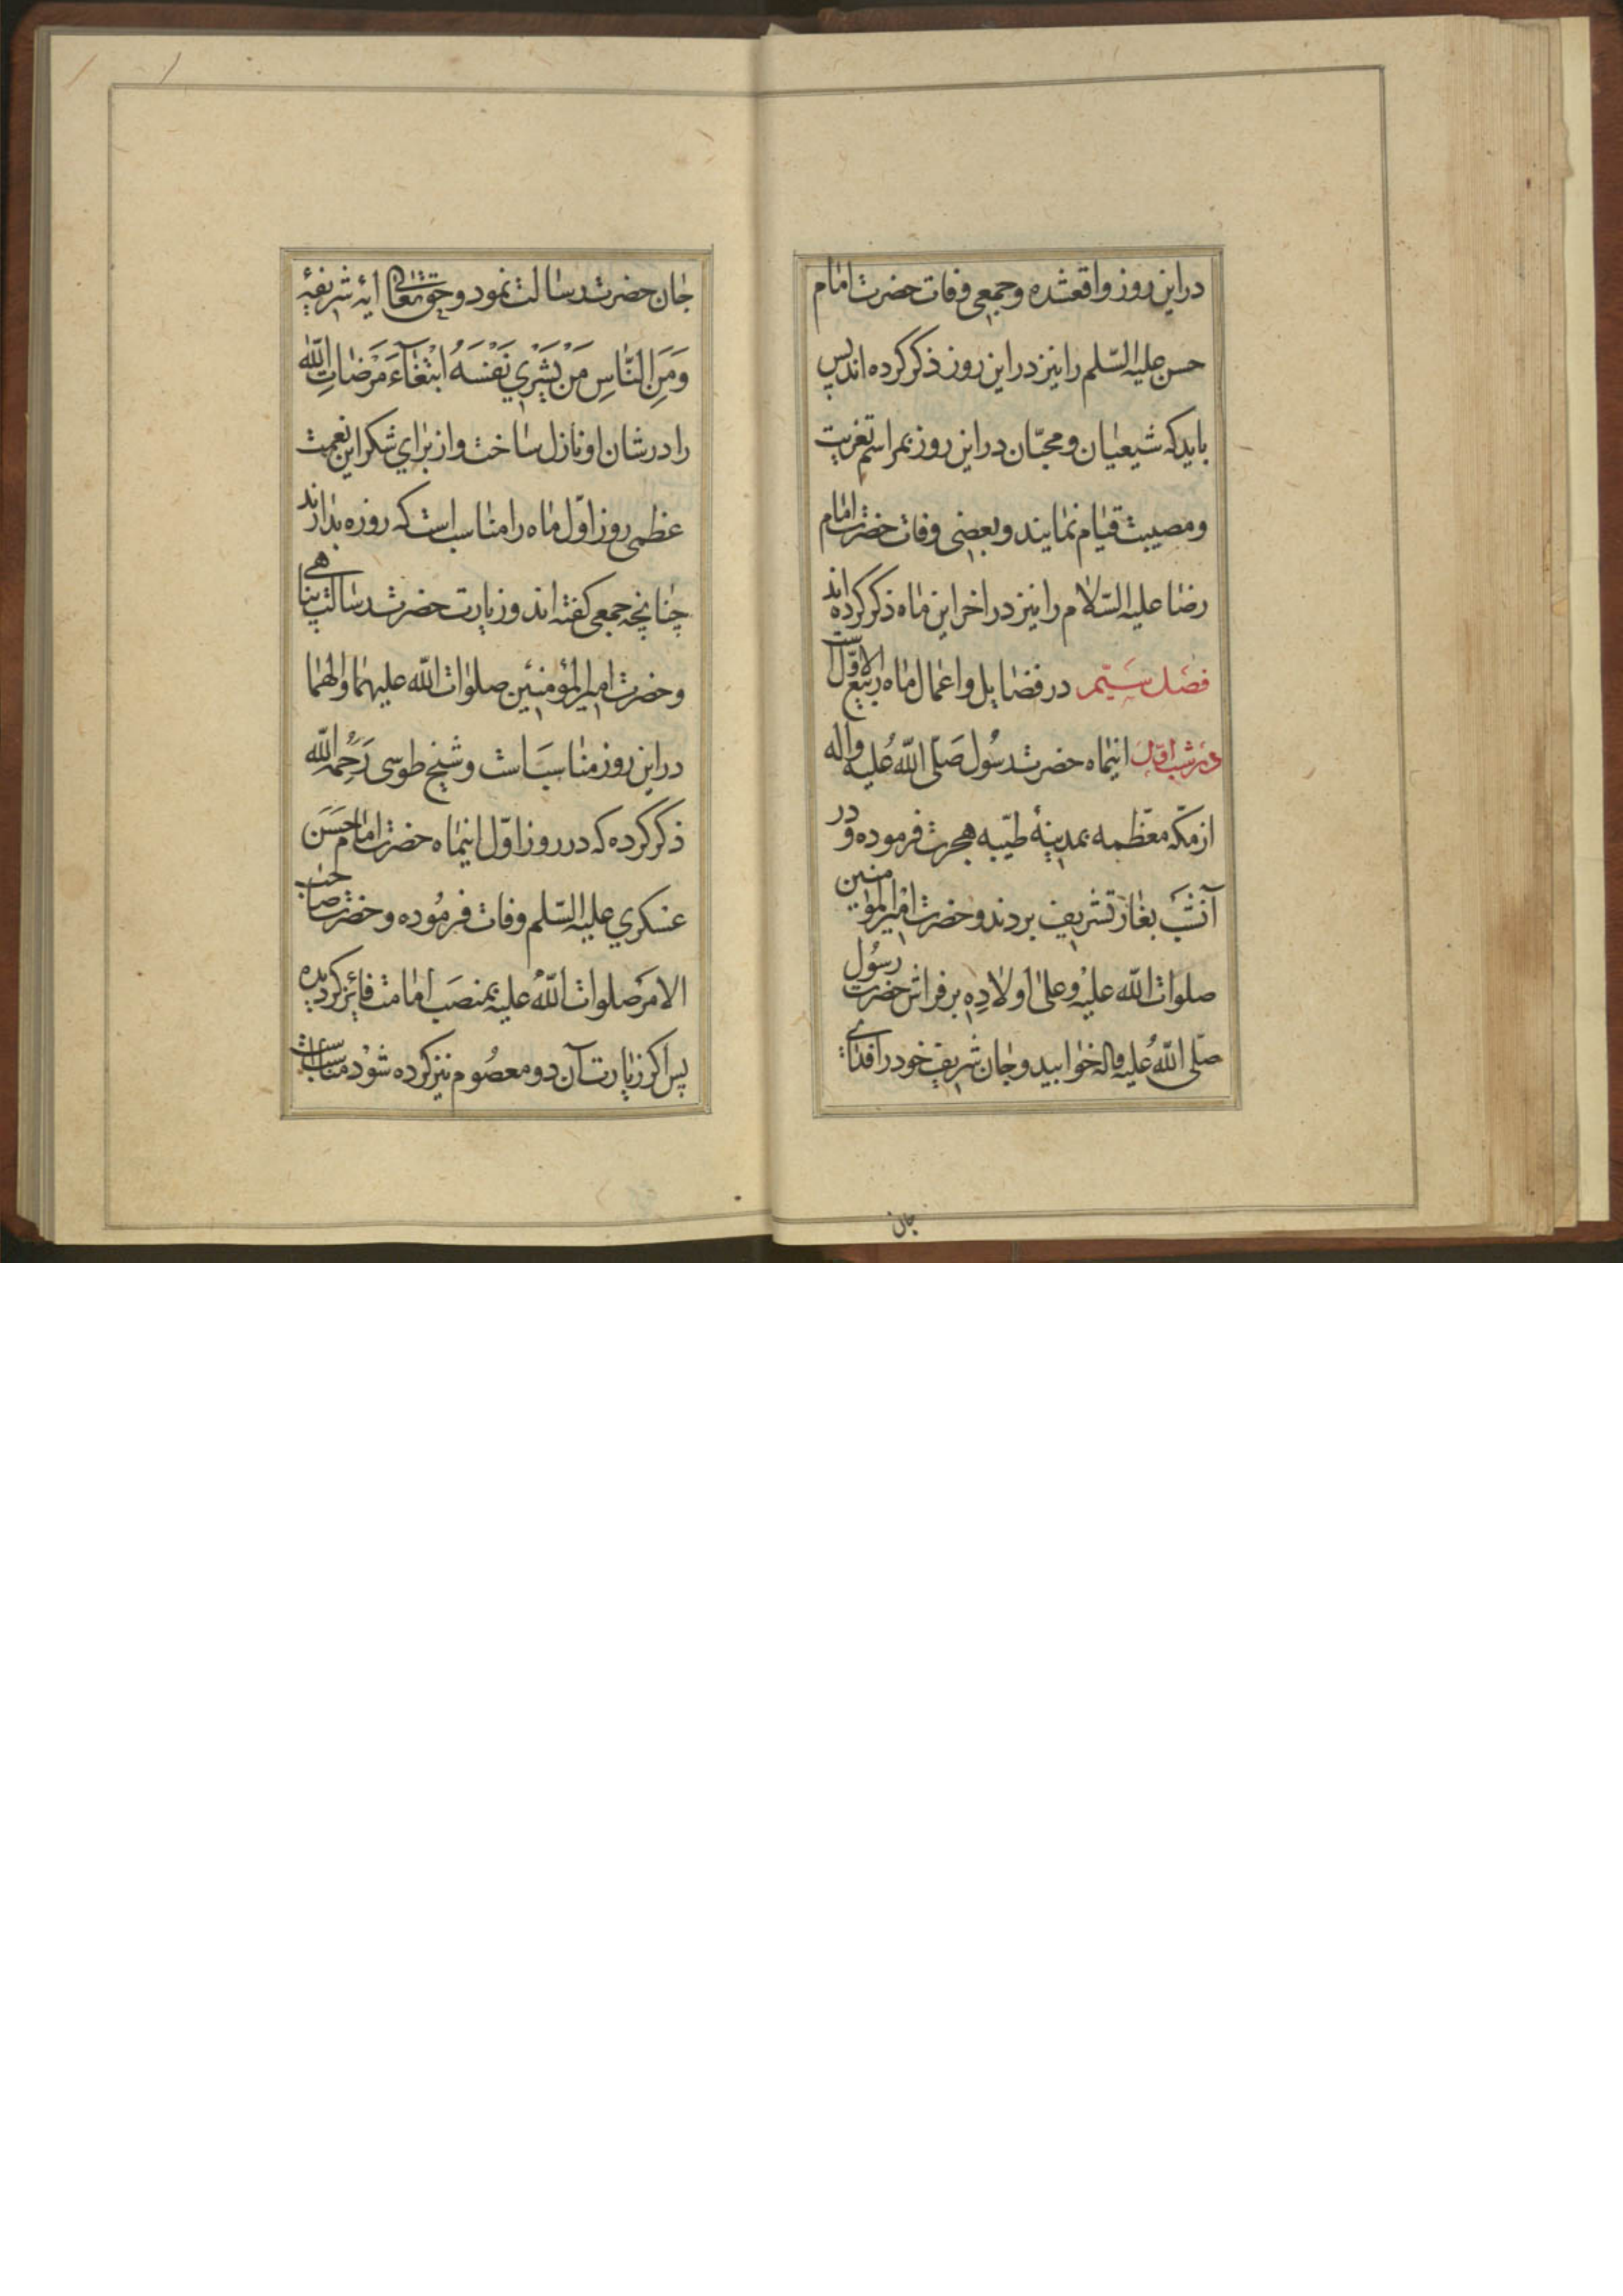 در این روز واقعشده و جمعی وفات حضرت امام
حسن علیه السّلم را نیز در این روز ذکر کرده اند پس
باید که شیعیان و محبّان در این روز بمراسم تعزیت
و مصیبت قیام نمایند و بعضی وفات حضرت امام
رضا علیه السّلام را نیز در اخر این ماه ذکر کرده اند
فصل سیّم در فضایل و اعمال ماه ربیع الاوّل است
در شب اوّل اینماه حضرت رسُول صَلّی اللّهُ عَلیه واله
از مکّه معظّمه بمدینهٔ طیّبه هجرت فرموده و در
آنشَب بغار تشریف بردند و حضرت امیرالمؤمنین
صلوات اللّه علیْه وعلیٰ اولادِه بر فراش حضرت رسُول
صلّی اللّهُ علیه واله خوابید و جان شریف خود را فدای
جان
جان حضرت رسالت نمود و حقتعالی ایه شریفهٔ
وَمَنَ النَّاسِ مَنْ یَشْرِي نَفْسَهُ ابْتِغَآءَ مَرَْضَاتِ اللّهِ
را در شان او نازل ساخت و از برای شکر این نعمت
عظمی روز اوّل ماه را مناسب است که روزه بدارند
چنانچه جمعی کفته اند و زیارت حضرت رسالت پناهی
و حضرت امیرالمؤمنین صلوات اللّه علیهما والهما
در این روز مناسبَ است و شیخ طوسی رَحِمَهُ اللّه
ذکر کرده که در روز اوّل اینماه حضرت امام حَسَن
عسکري علیه السّلم وفات فرمُوده و حضرت صاحب
الامَر صلوات اللّهُ علیه بمنصَب امامت فائز کردیده
پس اکر زیارت آن دو معصُوم نیز کرده شوْد مناسب است